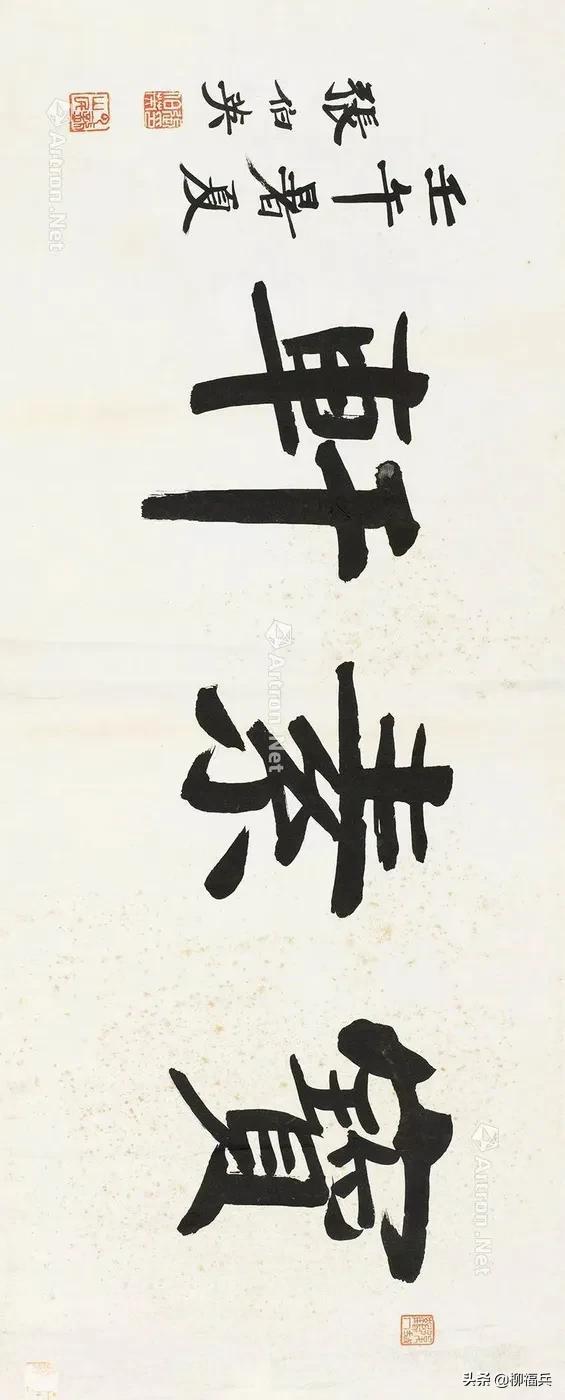 寳素軒
壬午暑夏
張伯英
Artron.Net
Artron.Net
Artron.Net
头条 @柳福兵